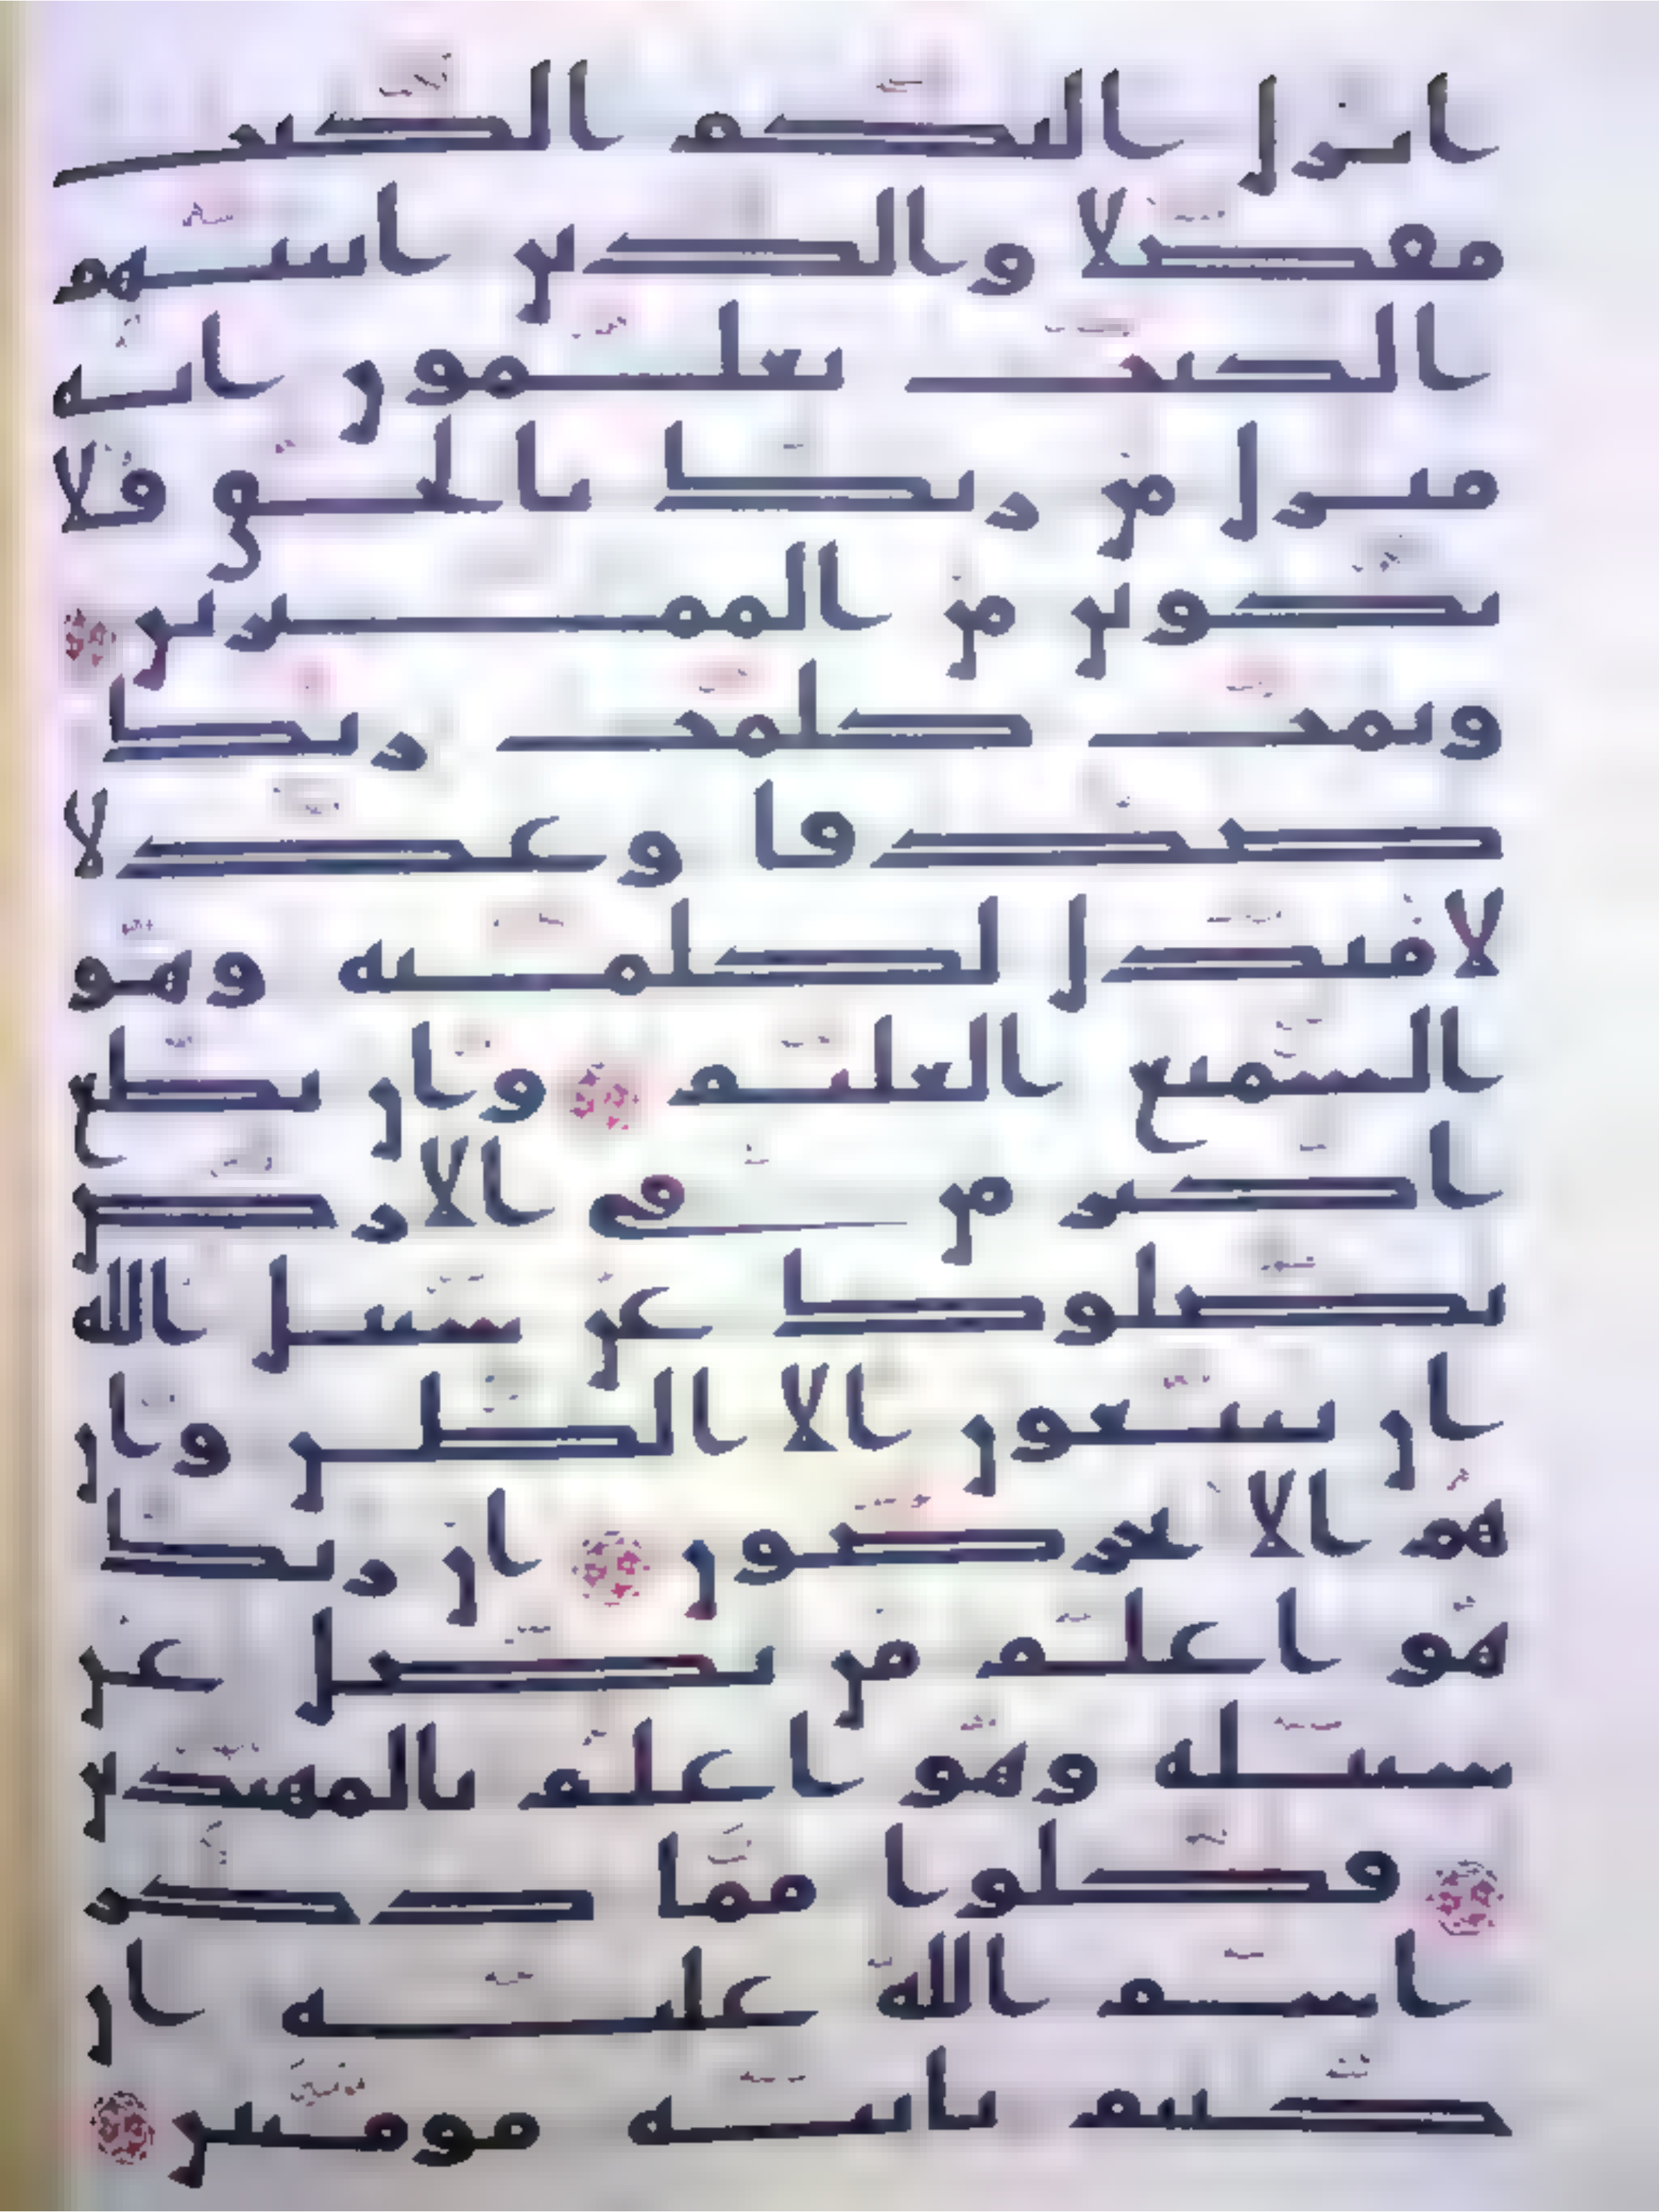 انزل اليكم الكتب
مفصلا والذين اتينهم
الكتب يعلمون انه
منزل من ربك بالحق فلا
تكونن من الممترين
وتمت كلمت ربك
صدقا وعدلا
لا مبدل لكلمته وهو
السميع العليم وان تطع
اكثر من في الارض
يضلوك عن سبيل الله
ان يتبعون الا الظن وان
هم الا يخرصون ان ربك
هو اعلم من يضل عن
سبيله وهو اعلم بالمهتدين
فكلوا مما ذكر
اسم الله عليه ان
كنتم بايته مومنين